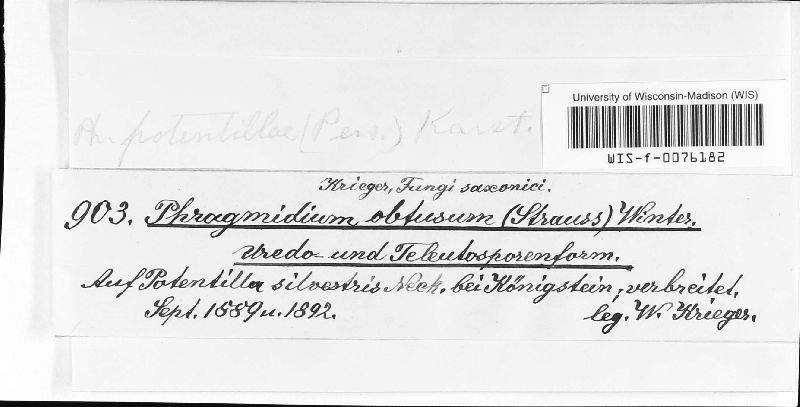 University of Wisconsin-Madison (WIS)
WIS-f-0076182
Ph. potentillae (Pers.) Karst.
Krieger, Fungi saxonici.
903. Phragmidium obtusum (Strauss) Winter.
Uredo- und Teleutosporenform.
Auf Potentilla silvestris Neck. bei Königstein, verbreitet.
Sept. 1889 u. 1892. leg. W. Krieger.